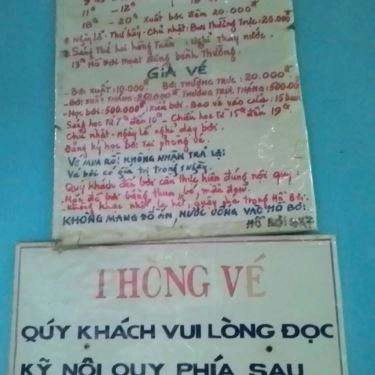 11ᴴ - 12ᴴ
18ᴴ - 20ᴴ xuất bơi đêm 20.000đ
Ngày lễ - Thứ bảy - Chủ nhật: Bơi Thường Trực: 25.000
Sáng Thứ hai hàng Tuần: Nghỉ Thay nước.
13ᴴ Hồ Bơi hoạt động bình Thường.
GIÁ VÉ
- Bơi xuất: 10.000đ Bơi Thường Trực: 20.000đ
- Học bơi: 500.000đ
Sáng học từ 7ᴴ đến 10ᴴ - Chiều học từ 15ᴴ đến 19ᴴ
Chủ nhật - ngày lễ nghỉ dạy bơi.
Đăng ký học bơi tại phòng vé.
VÉ MUA RỒI: KHÔNG NHẬN TRẢ LẠI
Vé bơi có giá trị trong 1 ngày.
Quý khách đến bơi cần thực hiện đúng nội quy:
KHÔNG MANG ĐỒ ĂN, NƯỚC UỐNG VÀO HỒ BƠI
THÔNG VÉ
QÚY KHÁCH VUI LÒNG ĐỌC
KỸ NỘI QUY PHÍA SAU